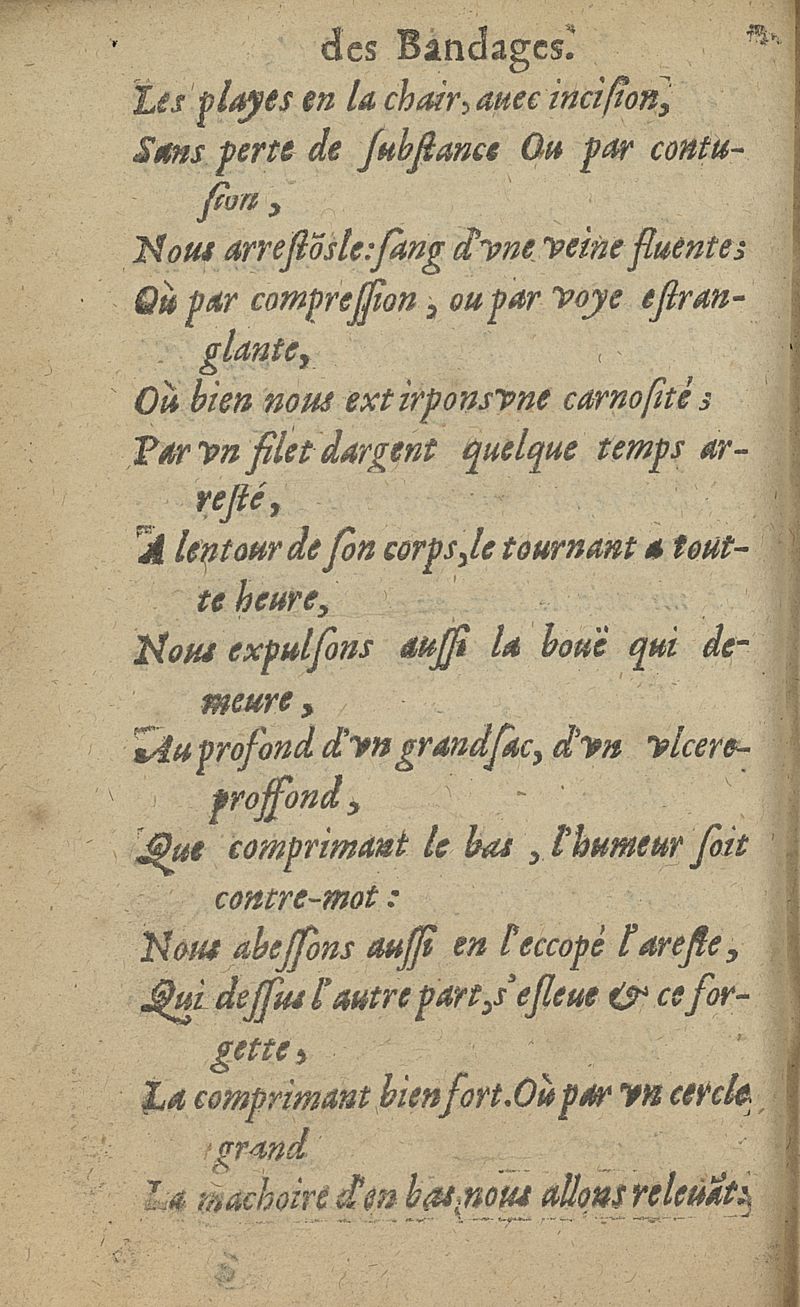 des Bandages.
Les playes en la chair, auec inciſion,
Sans perte de ſubſtance Ou par contu-
ſion ,
Nous arreſtõsle:ſang d'vne veine fluente;
Où par compreſſion , ou par voye eſtran-
glante,
Où bien nous extirponsvne carnoſité ;
Par vn filet dargent quelque temps ar-
reſté,
A lentour de ſon corps,le tournant a tout-
te heure,
Nous expulſons auſſi la bouë qui de-
meure ,
Au profond d'vn grandſac, d'vn vlcere-
proffond ,
Que comprimant le bas , l'humeur ſoit
contre-mot :
Nous abeſſons auſſi en l'eccopé l'areſte,
Qui deſſus l'autre part,s'eſleue & ce for-
gette ,
La comprimant bien fort.Où par vn cercle
grand
La machoire d'en bas,nous allons releuãt: